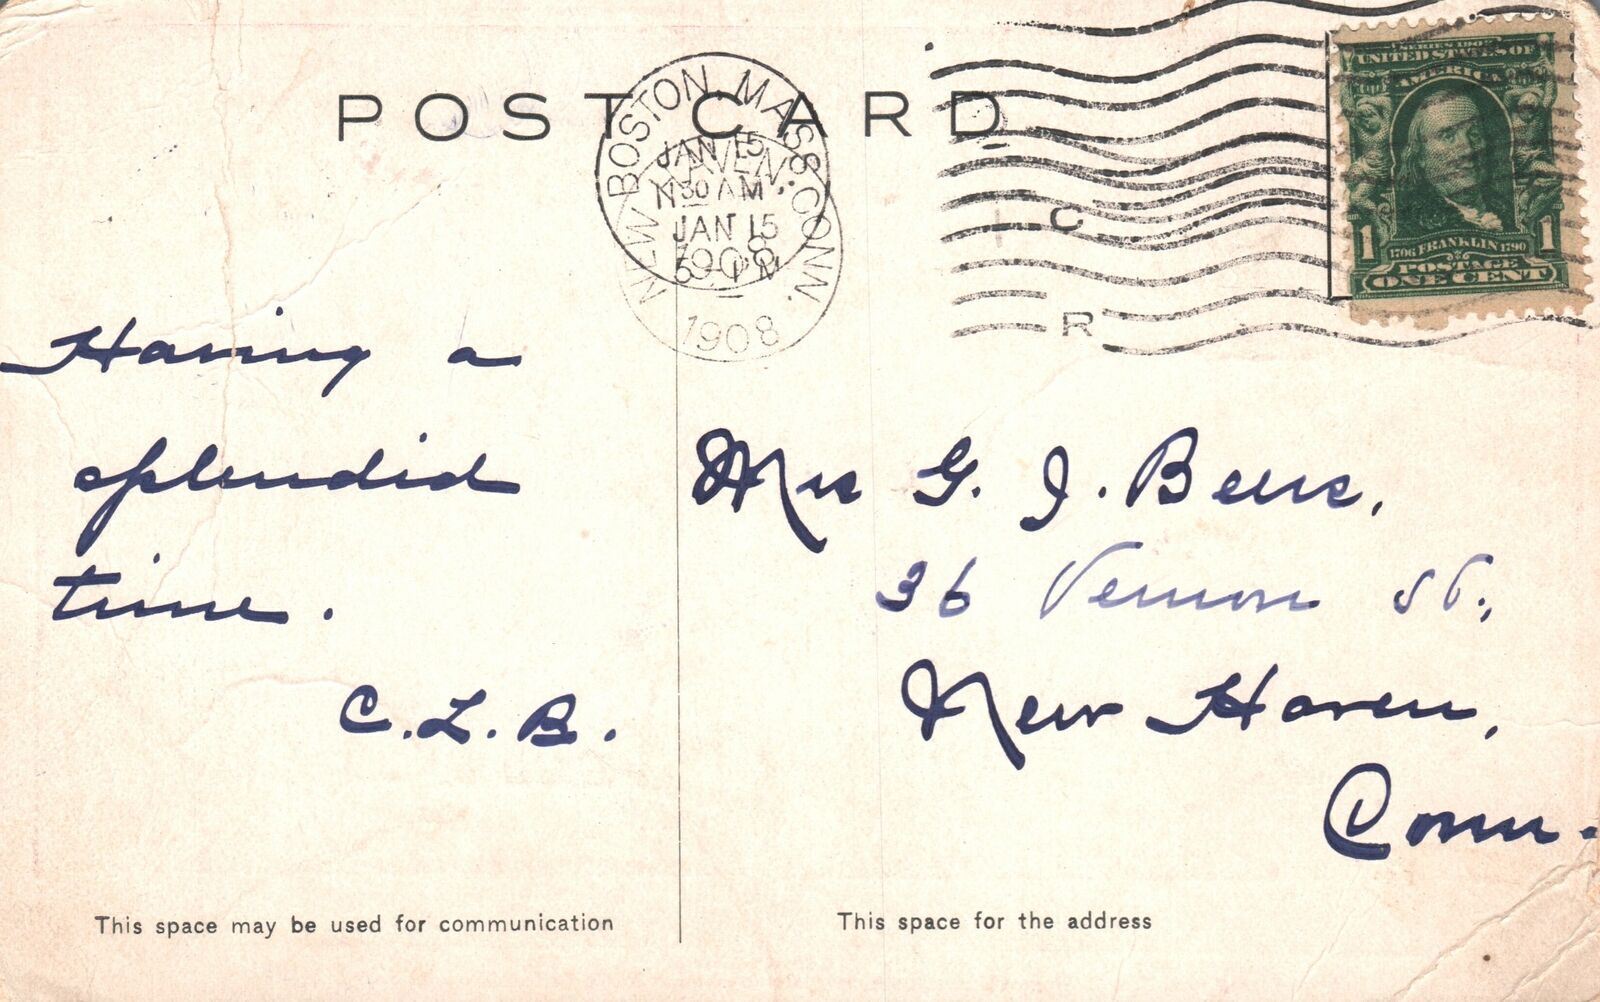 POST CARD
BOSTON, MASS.
JAN 15
30 AM
1908
NEW HAVEN, CONN.
JAN 15
5 - PM
1908
C
R
SERIES 1902
UNITED STATES OF
AMERICA
1706 FRANKLIN 1790
1 POSTAGE 1
ONE CENT
Having a
splendid
time.
C. L. B.
Mrs G. J. Beers,
36 Vernon St.,
New Haven,
Conn.
This space may be used for communication
This space for the address